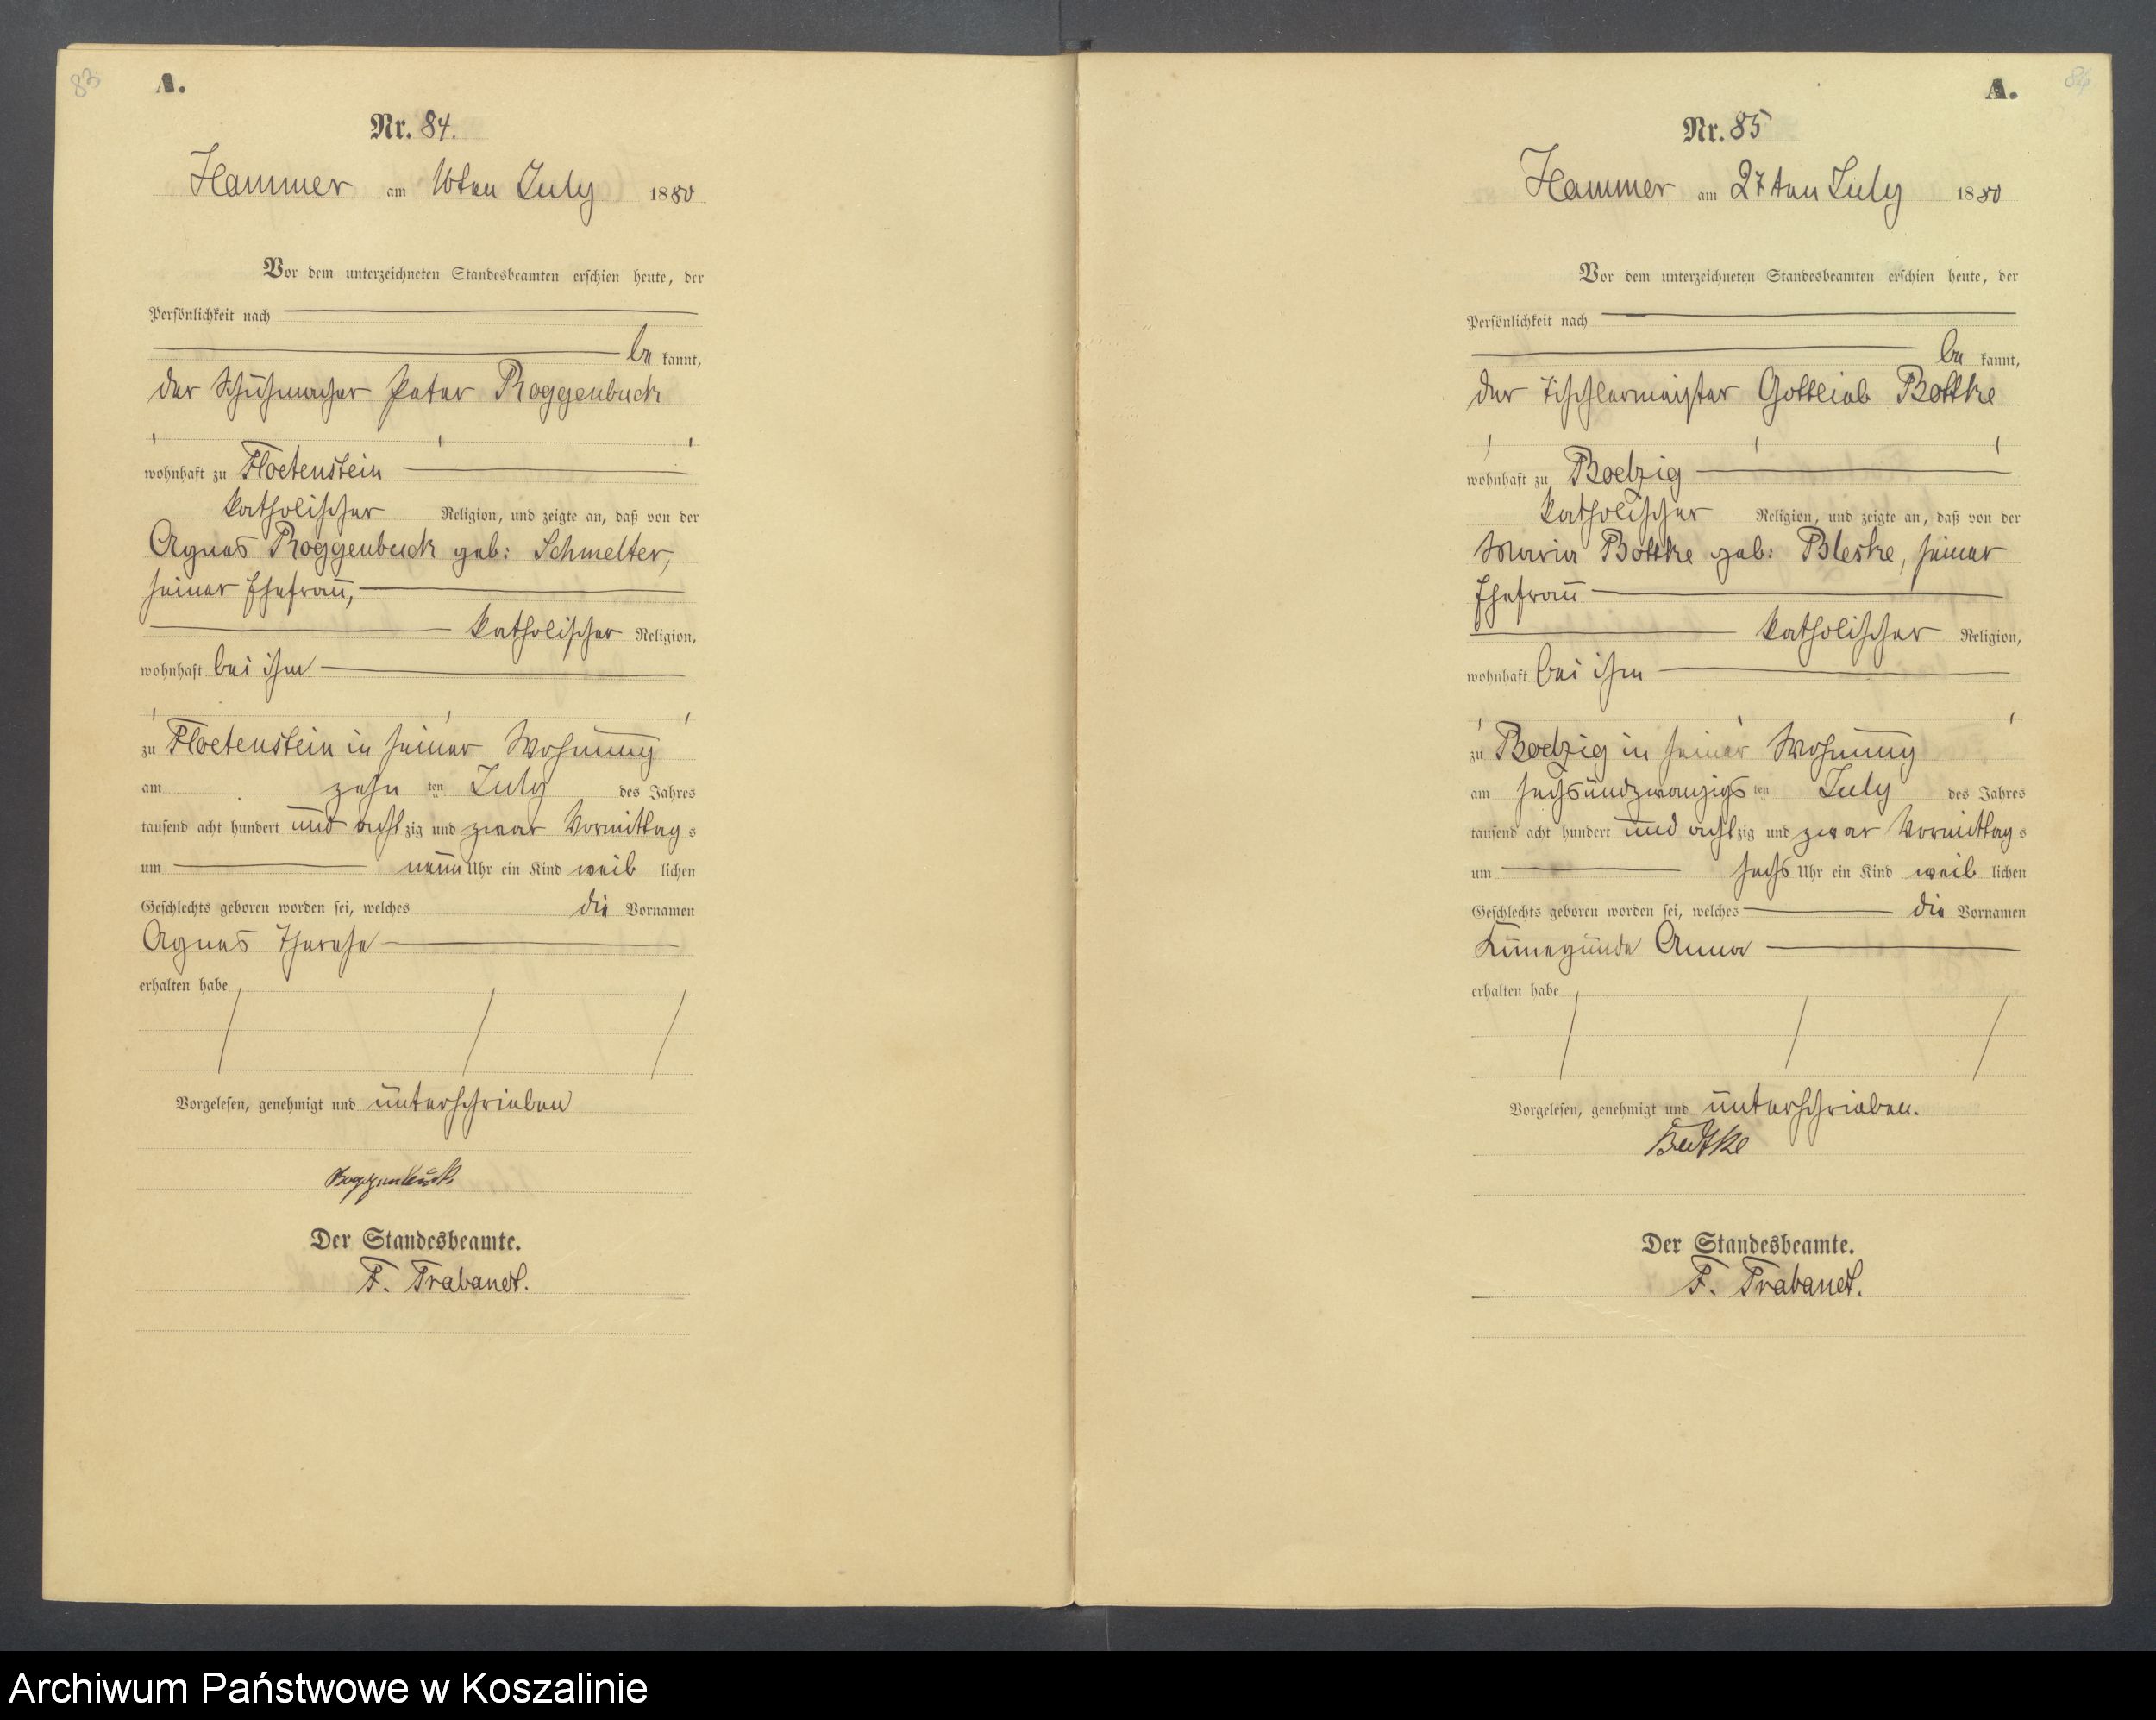 83
A.
Nr. 84.
Hammer am 10ten July 1880
Vor dem unterzeichneten Standesbeamten erschien heute, der
Persönlichkeit nach
be kannt,
der Schuhmacher Peter Roggenbuck
wohnhaft zu Floetenstein
katholischer Religion, und zeigte an, daß von der
Agnes Roggenbuck geb: Schmelter,
seiner Ehefrau,
katholischer Religion,
wohnhaft bei ihm
zu Floetenstein in seiner Wohnung
am zehn ten July des Jahres
tausend acht hundert und acht zig und zwar Vormittag s
um neun Uhr ein Kind weib lichen
Geschlechts geboren worden sei, welches die Vornamen
Agnes Therese
erhalten habe
Vorgelesen, genehmigt und unterschrieben
Roggenbuck
Der Standesbeamte.
F. Trabandt.
A.
84
Nr. 85
Hammer am 27ten July 1880
Vor dem unterzeichneten Standesbeamten erschien heute, der
Persönlichkeit nach
be kannt,
der Tischlermeister Gottlieb Bottke
wohnhaft zu Boelzig
katholischer Religion, und zeigte an, daß von der
Maria Bottke geb: Bleske, seiner
Ehefrau
katholischer Religion,
wohnhaft bei ihm
zu Boelzig in seiner Wohnung
am sechsundzwanzigs ten July des Jahres
tausend acht hundert und acht zig und zwar Vormittag s
um sechs Uhr ein Kind weib lichen
Geschlechts geboren worden sei, welches die Vornamen
Kunegunde Anna
erhalten habe
Vorgelesen, genehmigt und unterschrieben.
Der Standesbeamte.
F. Trabandt.
Archiwum Państwowe w Koszalinie